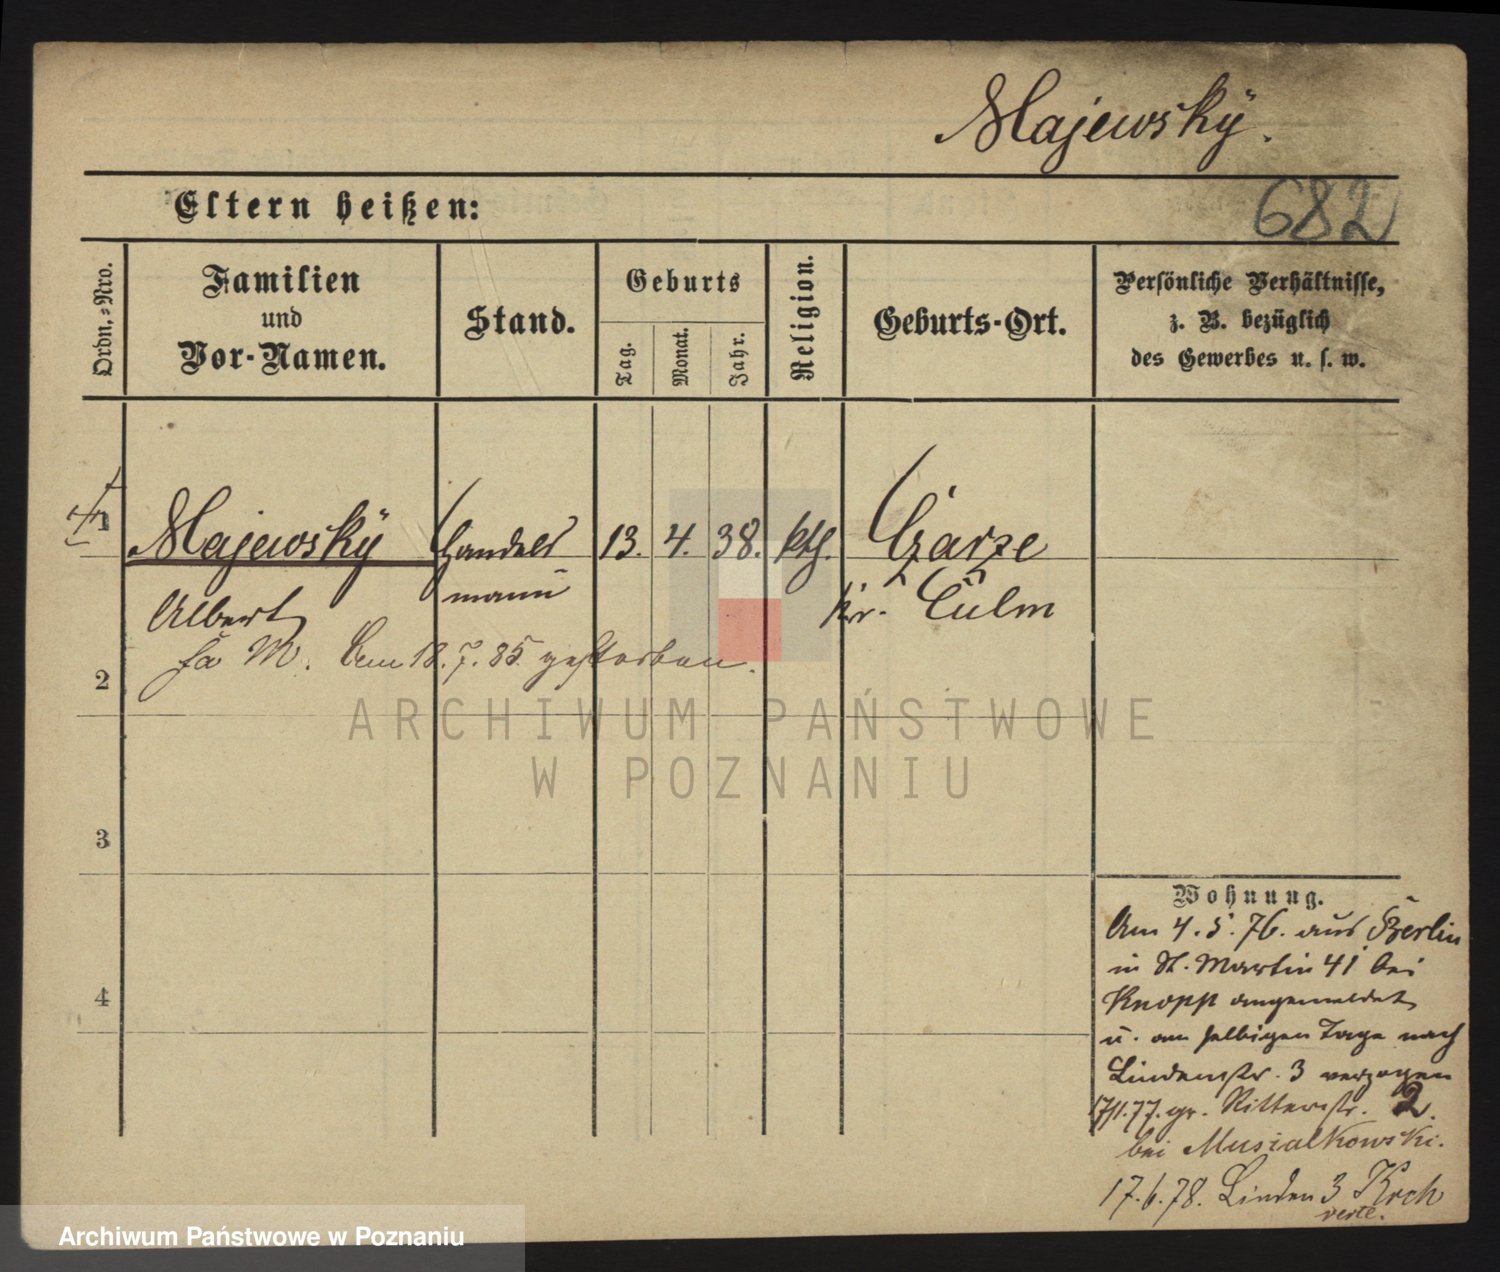 Majewsky.
682
Eltern heißen:
Ordn.-Nro.
Familien
und
Vor-Namen.
Stand.
Geburts
Tag.
Monat.
Jahr.
Religion.
Geburts-Ort.
Persönliche Verhältnisse,
z. B. bezüglich
des Gewerbes u. s. w.
1
Majewsky Handels 13. 4. 38. kth. Czarze
Albert mann Kr. Culm
M. Am 18.7.85 gestorben.
2
3
4
ARCHIWUM PAŃSTWOWE
W POZNANIU
Wohnung.
Am 4.5.76. aus Berlin
in St. Martin 41 bei
Knopp angemeldet
u. am selbigen Tage nach
Lindenstr. 3 verzogen
17/1.77. gr. Ritterstr. 2.
bei Musialkowski.
17.6.78. Linden 3
verte.
Archiwum Państwowe w Poznaniu